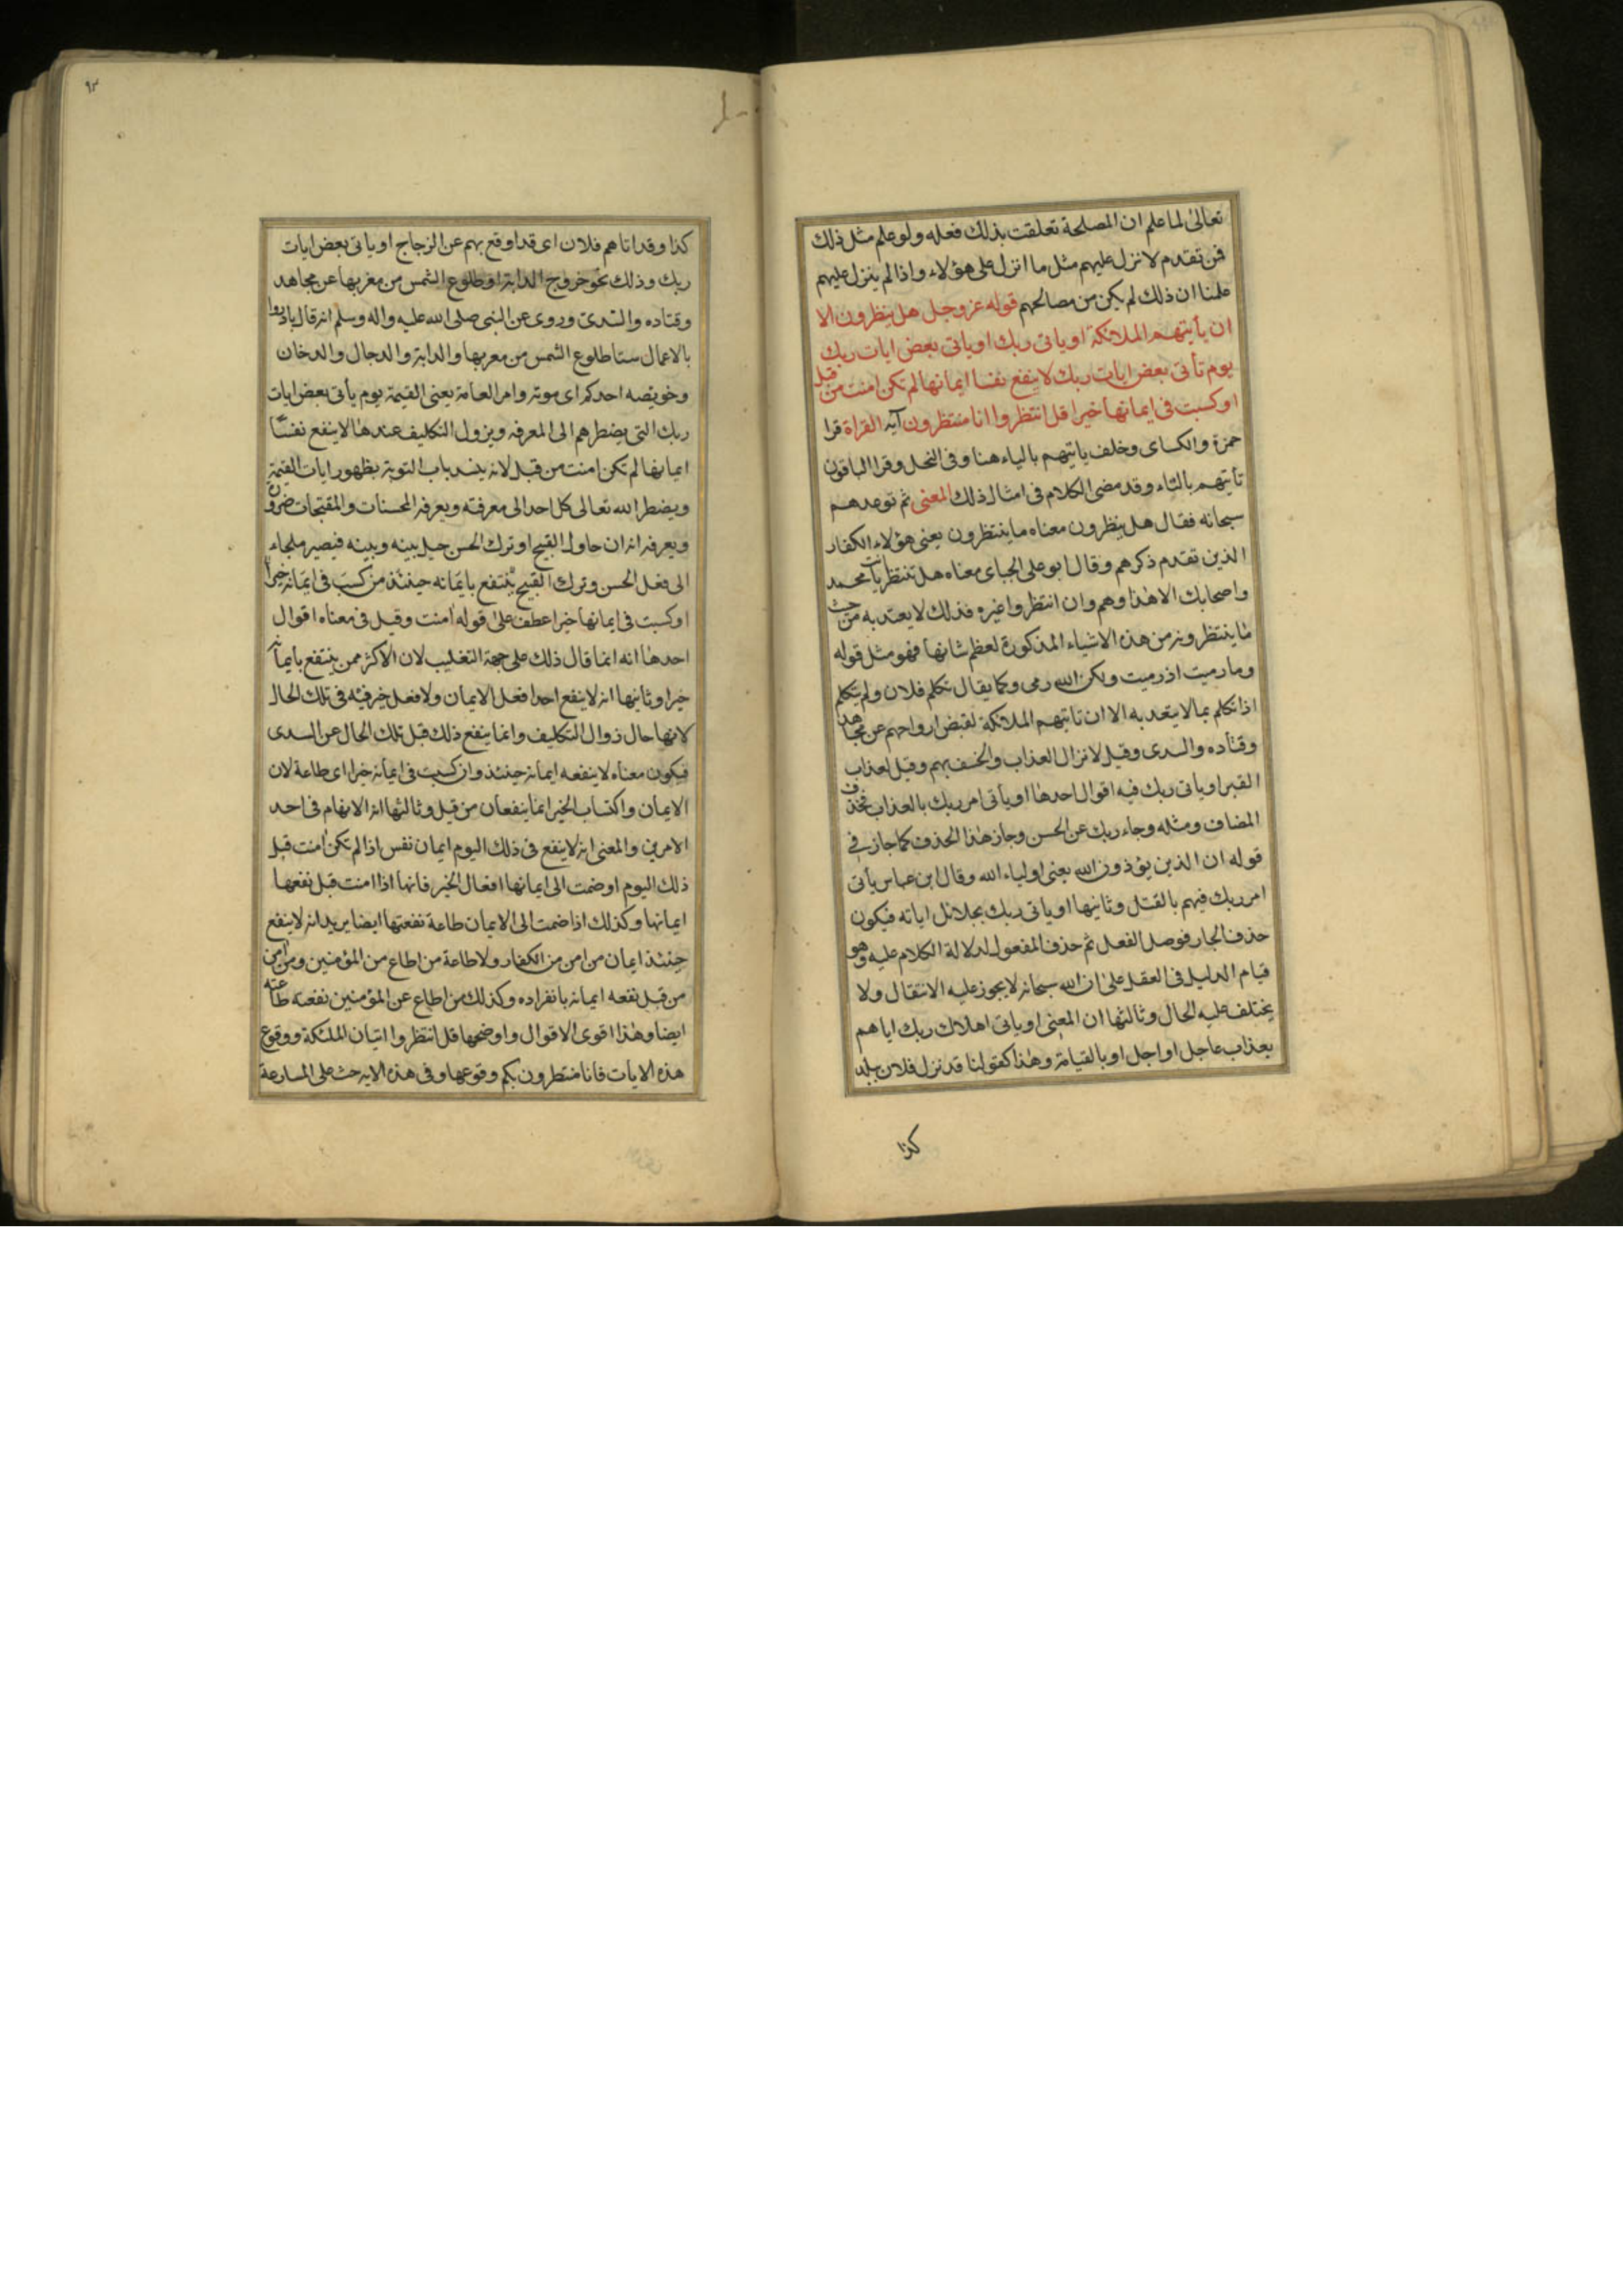 تعالى لما علم ان المصلحة تعلقت بذلك فعله ولو علم مثل ذلك
فمن تقدم لانزل عليهم مثل ما انزل على هؤلاء واذا لم ينزل عليهم
علمنا ان ذلك لم يكن من مصالحهم قوله عز وجل هل ينظرون الا
ان يأتيهم الملائكة او ياتى ربك او ياتى بعض ايات ربك
يوم تأتى بعض ايات ربك لا ينفع نفسا ايمانها لم تكن امنت من قبل
او كسبت فى ايمانها خيرا قل انتظروا انا منتظرون آية القراة قرا
حمزة والكساى وخلف ياتيهم بالياء هنا وفى النحل وقرا الباقون
تأتيهم بالتاء وقد مضى الكلام فى امثال ذلك المعنى ثم توعدهم
سبحانه فقال هل ينظرون معناه ما ينتظرون يعنى هؤلاء الكفار
الذين تقدم ذكرهم وقال ابو على الجباى معناه هل تنتظر يا محمد
واصحابك الا هذا وهم وان انتظروا غيره فذلك لا يعتد به من حيث
ما ينتظرونه من هذه الاشياء المذكورة لعظم شانها فهو مثل قوله
وما رميت اذ رميت ولكن الله رمى وكما يقال تكلم فلان ولم يتكلم
اذا تكلم بما لا يعتد به الا ان تاتيهم الملائكة لقبض ارواحهم عن مجاهد
وقتاده والسدى وقيل لانزال العذاب والخسف بهم وقيل لعذاب
القبر او ياتى ربك فيه اقوال احدها او يأتى امر ربك بالعذاب فحذف
المضاف ومثله وجاء ربك عن الحسن وجاز هذا الحذف كما جاز فى
قوله ان الذين يؤذون الله يعنى اولياء الله وقال ابن عباس يأتى
امر ربك فيهم بالقتل وثانيها او ياتى ربك بجلائل اياته فيكون
حذف الجار فوصل الفعل ثم حذف المفعول لدلالة الكلام عليه وهو
قيام الدليل فى العقل على ان الله سبحانه لا يجوز عليه الانتقال ولا
يختلف عليه الحال وثالثها ان المعنى او ياتى اهلاك ربك اياهم
بعذاب عاجل او اجل او بالقيامة وهذا كقولنا قد نزل فلان ببلد
كذا
٩٢
كذا وقد اتاهم فلان اى قد اوقع بهم عن الزجاج او ياتى بعض ايات
ربك وذلك نحو خروج الدابة او طلوع الشمس من مغربها عن مجاهد
وقتاده والسدى وروى عن النبى صلى الله عليه واله وسلم انه قال بادروا
بالاعمال ستا طلوع الشمس من مغربها والدابة والدجال والدخان
وخويصه احدكم اى موته وامر العامة يعنى القيمة يوم يأتى بعض ايات
ربك التى يضطرهم الى المعرفه ويزول التكليف عندها لا ينفع نفسا
ايمانها لم تكن امنت من قبل لانه ينسد باب التوبة بظهور ايات القيمة
ويضطر الله تعالى كل احد الى معرفته ويعرفه المحسنات والمقبحات ضرورة
ويعرفه انه ان حاول القبيح او ترك الحسن حيل بينه وبينه فيصير ملجاء
الى فعل الحسن وترك القبيح ينتفع بايمانه حينئذ من كسب فى ايمانه خيرا
او كسبت فى ايمانها خيرا عطف على قوله امنت وقيل فى معناه اقوال
احدها انه انما قال ذلك على جهة التغليب لان الاكثر ممن ينتفع بايمانه
خيرا وثانيها انه لا ينفع احدا فعل الايمان ولا فعل خير فيه فى تلك الحال
لانها حال زوال التكليف وانما ينفع ذلك قبل تلك الحال عن السدى
فيكون معناه لا ينفعه ايمانه حينئذ وان كسبت فى ايمانه خيرا اى طاعة لان
الايمان واكتساب الخير انما ينفعان من قبل وثالثها انه الابهام فى احد
الامرين والمعنى انه لا ينفع فى ذلك اليوم ايمان نفس اذا لم تكن امنت قبل
ذلك اليوم او ضمت الى ايمانها افعال الخير فانها اذا امنت قبل نفعها
ايمانها وكذلك اذا ضمت الى الايمان طاعة نفعتها ايضا يريد انه لا ينفع
حينئذ ايمان من امن من الكفار ولا طاعة من اطاع من المؤمنين ومن امن
من قبل نفعه ايمانه بانفراده وكذلك من اطاع عن المؤمنين نفعته طاعته
ايضا وهذا اقوى الاقوال واوضحها قل انتظروا اتيان الملئكة ووقوع
هذه الايات فانا منتظرون بكم وقوعها وفى هذه الايه حث على المسارعة